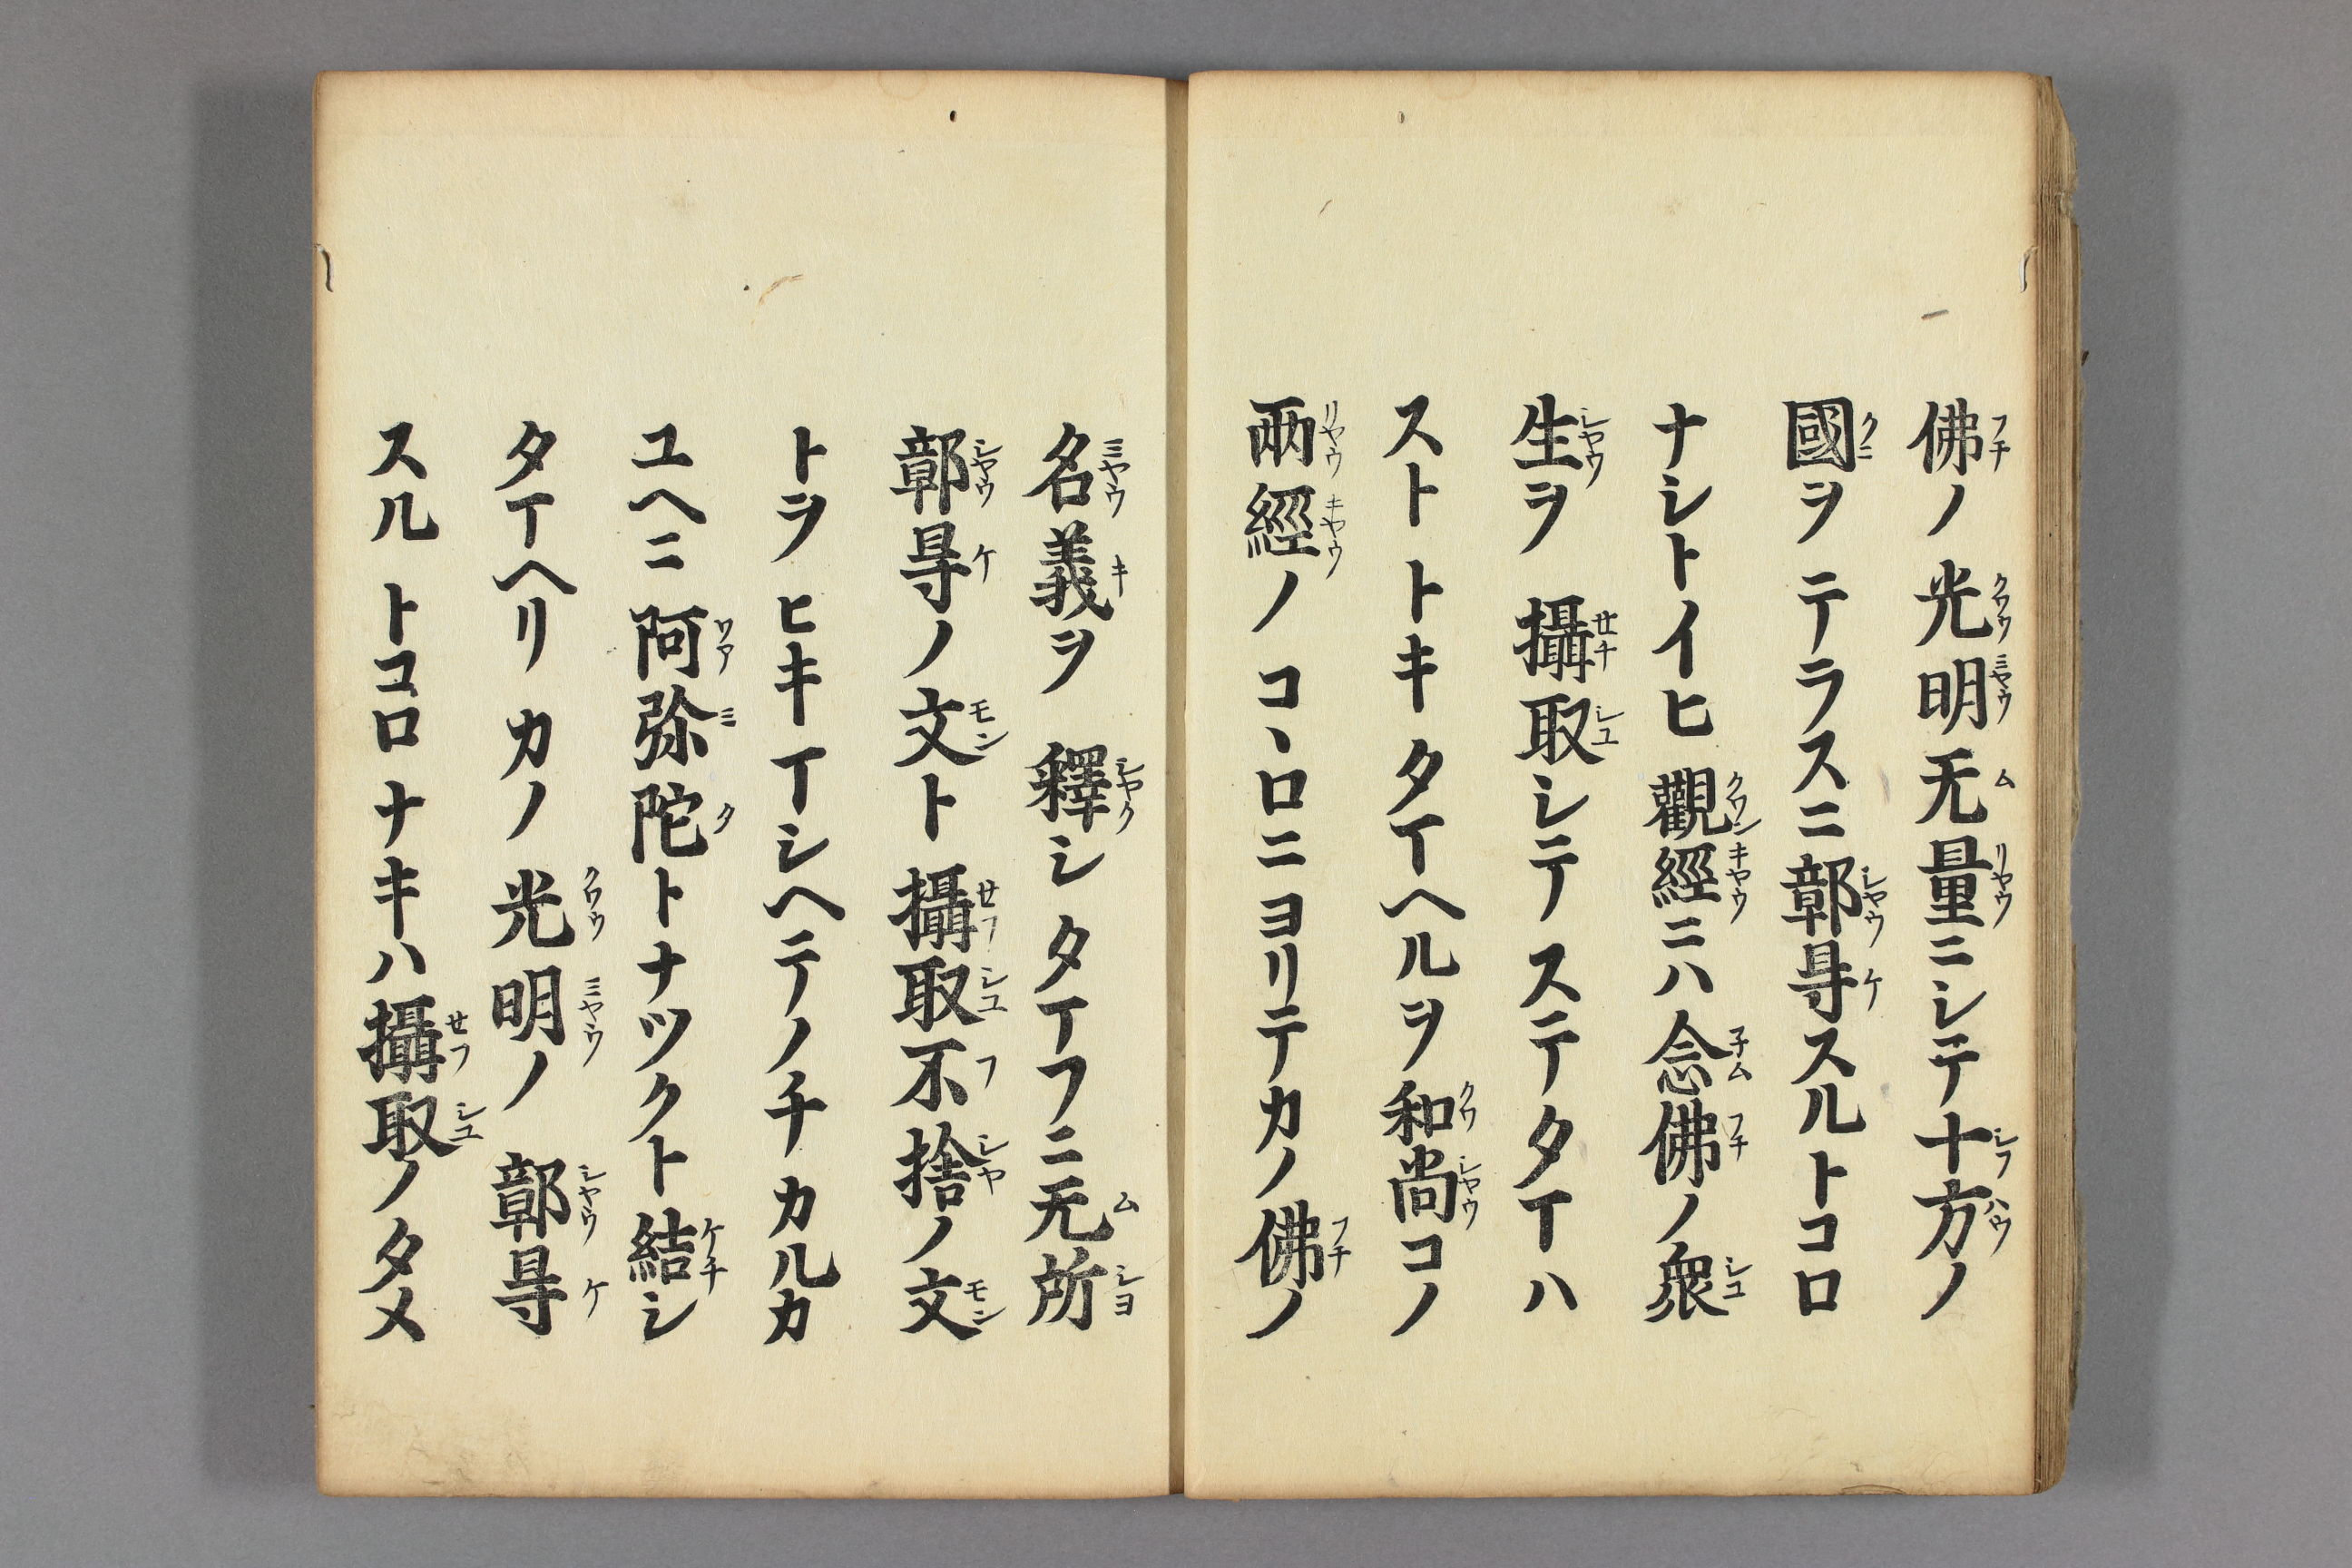 佛ノ光明无量ニシテ十方ノ
國ヲテラスニ鄣㝵スルトコロ
ナシトイヒ觀經ニハ念佛ノ衆
生ヲ攝取シテステタマハ
ストトキタマヘルヲ和尚コノ
兩經ノコヽロニヨリテカノ佛ノ
名義ヲ釋シタマフニ无所
鄣㝵ノ文ト攝取不捨ノ文
トヲヒキマシヘテノチカルカ
ユヘニ阿弥陀トナツクト結シ
タマヘリカノ光明ノ鄣㝵
スルトコロナキハ攝取ノタメ